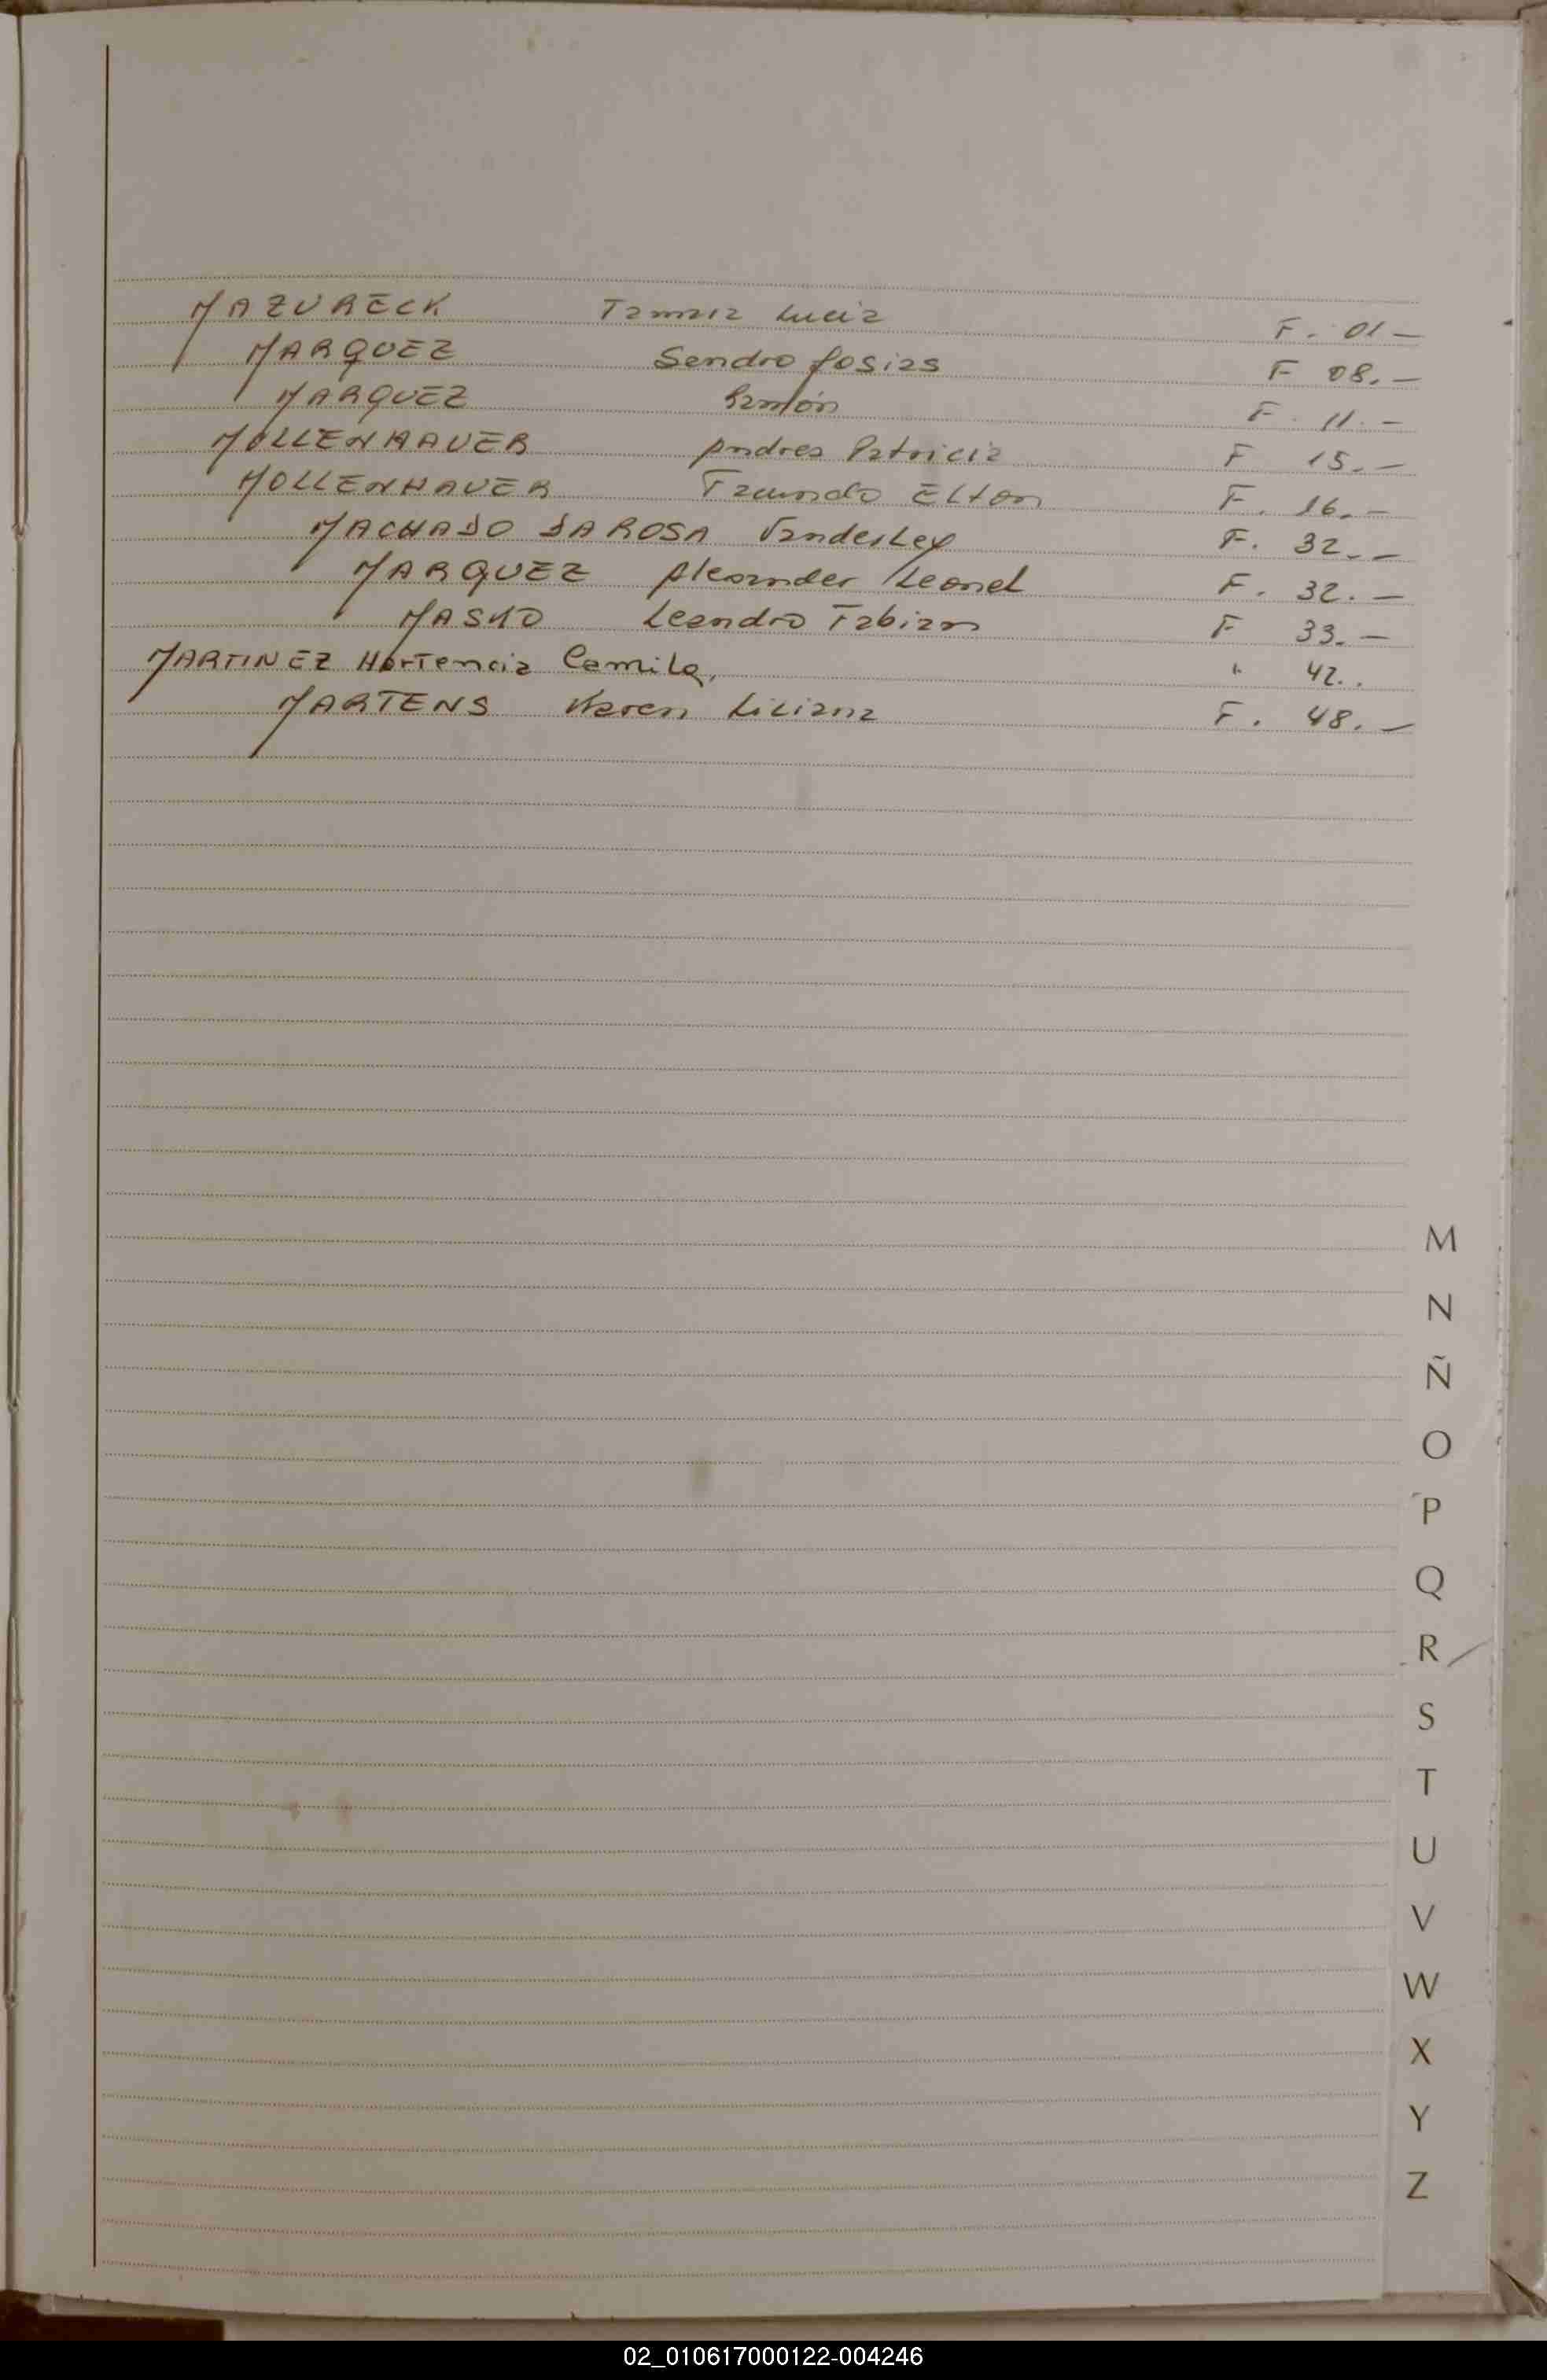 MAZURECK Tamara Lucia F. 01 –
MARQUEZ Sandro Josias F 08. –
MARQUEZ Ramón F. 11. –
MOLLENHAUER Andrea Patricia F 15. –
MOLLENHAUER Facundo Elton F. 16. –
MACHADO DA ROSA Vanderley F. 32. –
MARQUEZ Alexander Leonel F. 32. –
MASKO Leandro Fabian F 33. –
MARTINEZ Hortencia Camila, " 42. .
MARTENS Karen Liliana F. 48. –
M
N
Ñ
O
P
Q
R
S
T
U
V
W
X
Y
Z
02_010617000122-004246